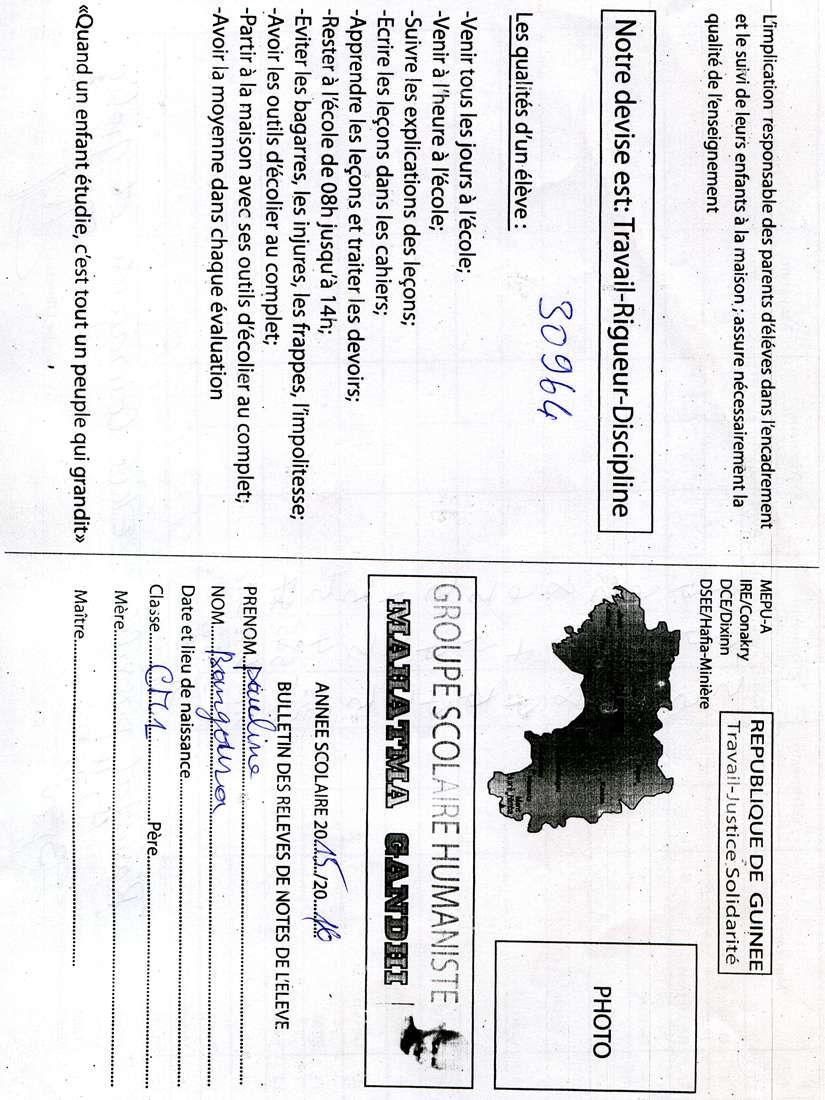 L'implication responsable des parents d'élèves dans l'encadrement
et le suivi de leurs enfants à la maison ; assure nécessairement la
qualité de l'enseignement
Notre devise est: Travail-Rigueur-Discipline
30964
Les qualités d'un élève :
-Venir tous les jours à l'école;
-Venir à l'heure à l'école;
-Suivre les explications des leçons;
-Ecrire les leçons dans les cahiers;
-Apprendre les leçons et traiter les devoirs;
-Rester à l'école de 08h jusqu'à 14h;
-Eviter les bagarres, les injures, les frappes, l'impolitesse;
-Avoir les outils d'écolier au complet;
-Partir à la maison avec ses outils d'écolier au complet;
-Avoir la moyenne dans chaque évaluation
«Quand un enfant étudie, c'est tout un peuple qui grandit»
MEPU-A
IRE/Conakry
DCE/Dixinn
DSEE/Hafia-Minière
REPUBLIQUE DE GUINEE
Travail-Justice Solidarité
PHOTO
GROUPE SCOLAIRE HUMANISTE
MAHATMA GANDHI
ANNEE SCOLAIRE 2015/20...16
BULLETIN DES RELEVES DE NOTES DE L'ÉLEVE
PRENOM..Pauline
NOM...Bangoura
Date et lieu de naissance
Classe......CM1.......Père
Mère
Maître